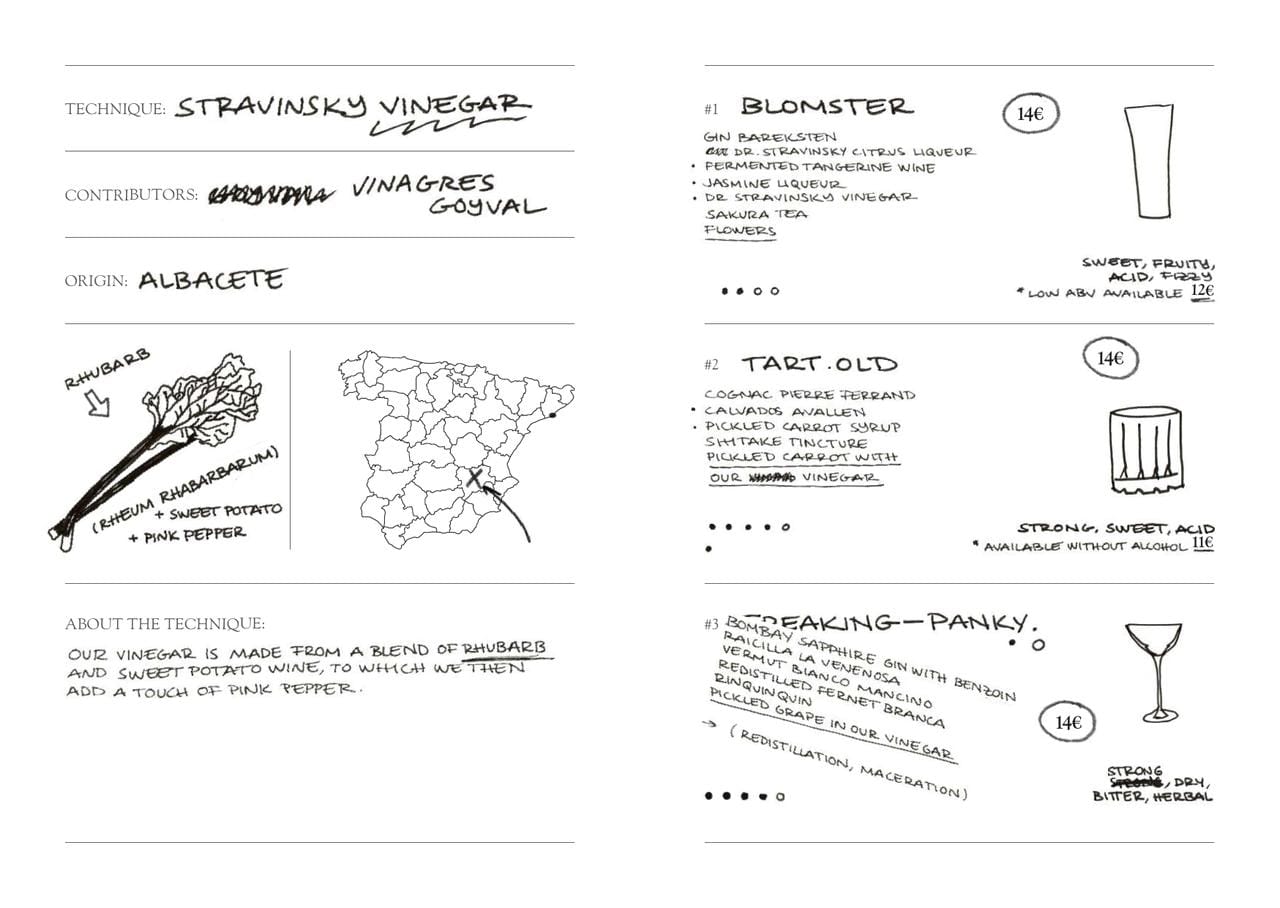 TECHNIQUE: STRAVINSKY VINEGAR
CONTRIBUTORS: VINAGRES
GOYVAL
ORIGIN: ALBACETE
RHUBARB
(RHEUM RHABARBARUM)
+ SWEET POTATO
+ PINK PEPPER
ABOUT THE TECHNIQUE:
OUR VINEGAR IS MADE FROM A BLEND OF RHUBARB
AND SWEET POTATO WINE, TO WHICH WE THEN
ADD A TOUCH OF PINK PEPPER.
#1 BLOMSTER 14€
GIN BAREKSTEN
DR. STRAVINSKY CITRUS LIQUEUR
• FERMENTED TANGERINE WINE
• JASMINE LIQUEUR
• DR STRAVINSKY VINEGAR
SAKURA TEA
FLOWERS
SWEET, FRUITY,
ACID, FIZZY
* LOW ABV AVAILABLE 12€
#2 TART.OLD 14€
COGNAC PIERRE FERRAND
• CALVADOS AVALLEN
• PICKLED CARROT SYRUP
SHITAKE TINCTURE
PICKLED CARROT WITH
OUR VINEGAR
STRONG, SWEET, ACID
* AVAILABLE WITHOUT ALCOHOL 11€
#3 EAKING-PANKY.
BOMBAY SAPPHIRE GIN WITH BENZOIN
RAICILLA LA VENENOSA
VERMUT BIANCO MANCINO
REDISTILLED FERNET BRANCA
RINQUINQUIN
PICKLED GRAPE IN OUR VINEGAR
→ (REDISTILLATION, MACERATION)
14€
STRONG
, DRY,
BITTER, HERBAL